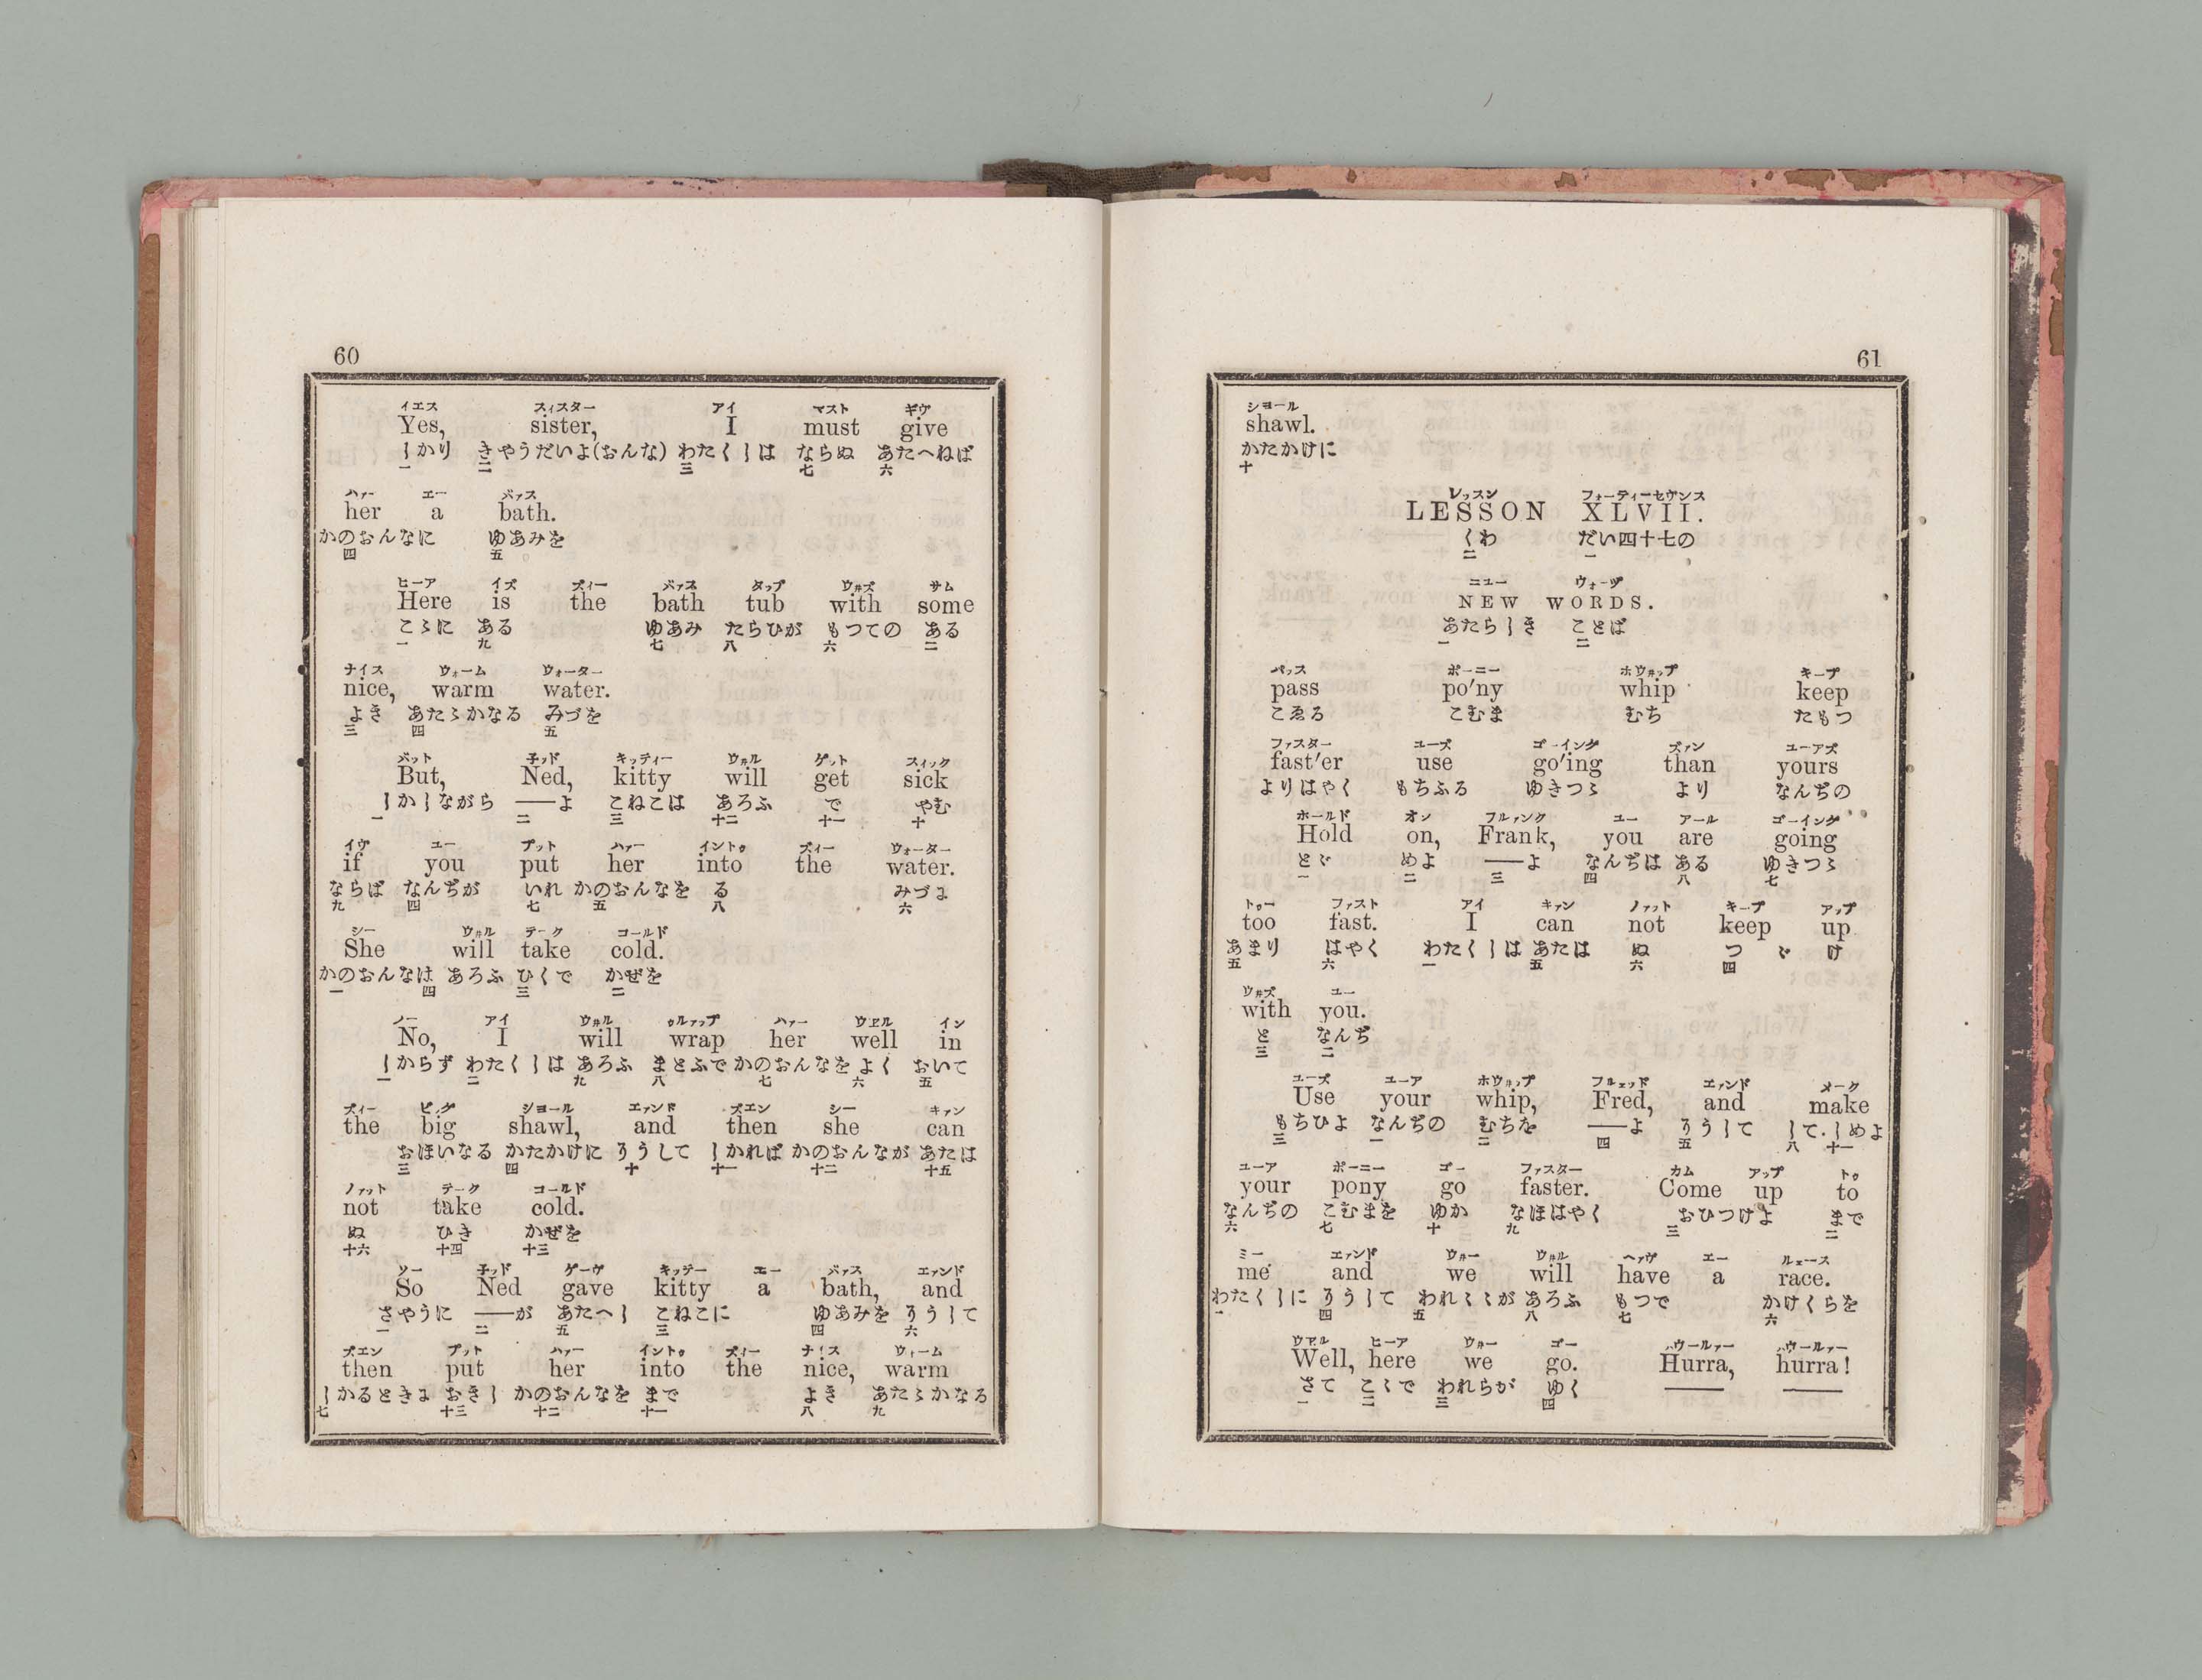 60
イエス スィスター アイ マスト ギヴ
Yes, sister, I must give
しかり きやうだいよ(おんな) わたくしは ならぬ あたへねば
一 二 三 七 六
ハァー エー バァス
her a bath.
かのおんなに ゆあみを
四 五
ヒーア イズ ズィー バァス タップ ウ井ズ サム
Here is the bath tub with some
こゝに ある ゆあみ たらひが もつての ある
一 九 七 八 六 二
ナイス ウォーム ウォーター
nice, warm water.
よき あたゝかなる みづを
三 四 五
バット 子ッド キッティー ウ井ル ゲット スィック
But, Ned, kitty will get sick
しかしながら ──よ こねこは あろふ で やむ
一 二 三 十二 十一 十
イヴ ユー プット ハァー イントゥ ズィー ウォーター
if you put her into the water.
ならば なんぢが いれ かのおんなを る みづに
九 四 七 五 八 六
シー ウ井ル テーク コールド
She will take cold.
かのおんなは あろふ ひくで かぜを
一 四 三 二
ノー アイ ウ井ル ゥルァップ ハァー ウヱル イン
No, I will wrap her well in
しからず わたくしは あろふ まとふで かのおんなを よく おいて
一 二 九 八 七 六 五
ズィー ビッグ ショール エァンド ズエン シー キァン
the big shawl, and then she can
おほいなる かたかけに そうして しかれば かのおんなが あたは
三 四 十 十一 十二 十五
ノァット テーク コールド
not take cold.
ぬ ひき かぜを
十六 十四 十三
ソー 子ッド ゲーヴ キッテー エー バァス エァンド
So Ned gave kitty a bath, and
さやうに ──が あたへし こねこに ゆあみを そうして
一 二 五 三 四 六
ズエン プット ハァー イントゥ ズィー ナイス ウォーム
then put her into the nice, warm
しかるときに おきし かのおんなを まで よき あたゝかなる
七 十三 十二 十一 八 九
61
ショール
shawl.
かたかけに
十
レッスン フォーティーセヴンス
LESSON XLVII.
くわ だい四十七の
二 一
ニュー ウォーヅ
NEW WORDS.
あたらしき ことば
一 二
パッス ポーニー ホウ井ップ キープ
pass po'ny whip keep
こゑる こむま むち たもつ
ファスター ユーズ ゴーイング ズァン ユーアズ
fast'er use go'ing than yours
よりはやく もちふる ゆきつゝ より なんぢの
ホールド オン フルァンク ユー アール ゴーイング
Hold on, Frank, you are going
とゞ めよ ──よ なんぢは ある ゆきつゝ
一 二 三 四 八 七
トゥー ファスト アイ キァン ノァット キープ アップ
too fast. I can not keep up
あまり はやく わたくしは あたは ぬ つ ゞ け
五 六 一 五 六 四
ウ井ズ ユー
with you.
と なんぢ
三 二
ユーズ ユーア ホウ井ップ フルェッド エァンド メーク
Use your whip, Fred, and make
もちひよ なんぢの むちを ──よ そうして して.しめよ
三 一 二 四 五 八 十一
ユーア ポーニー ゴー ファスター カム アップ トゥ
your pony go faster. Come up to
なんぢの こむまを ゆか なほはやく おひつけよ まで
六 七 十 九 三 二
ミー エァンド ウ井ー ウ井ル ヘァヴ エー ルェース
me and we will have a race.
わたくしに そうして われ〻〻が あろふ もつで かけくらを
一 四 五 八 七 六
ウヱル ヒーア ウ井ー ゴー ハウールァー ハウールァー
Well, here we go. Hurra, hurra!
さて こゝで われらが ゆく ── ──
一 二 三 四